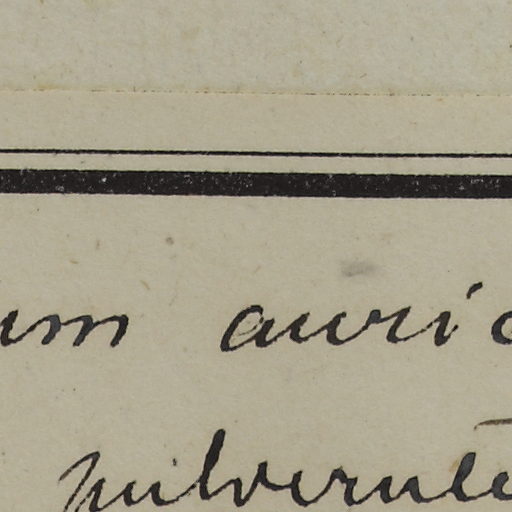 um auric
pulverule